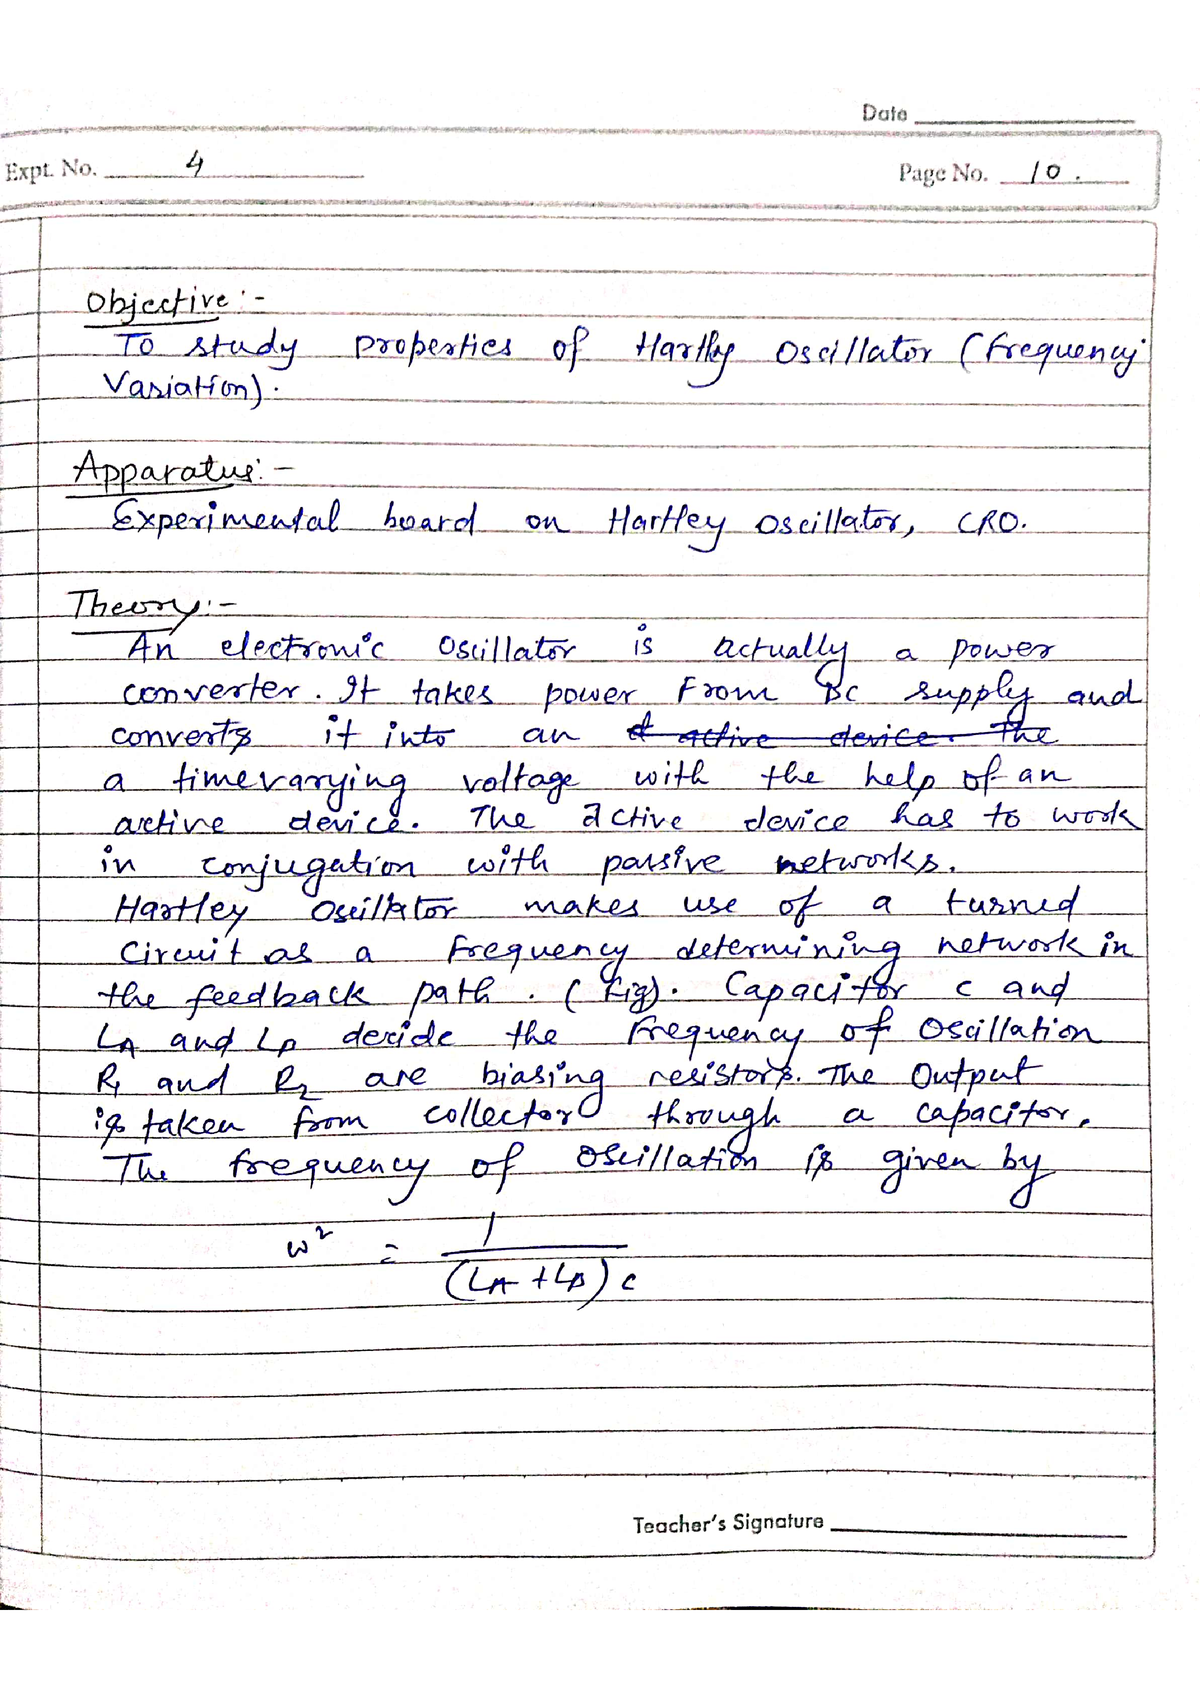 Date
Expt. No. 4
Page No. 10.
Objective:-
To study properties of Hartley Oscillator (frequency
Variation).
Apparatus:-
Experimental board on Hartley oscillator, CRO.
Theory:-
An electronic Oscillator is actually a power
converter. It takes power From DC supply and
converts it into an active device. The
a timevarying voltage with the help of an
active device. The active device has to work
in conjugation with passive networks.
Hartley Oscillator makes use of a turned
Circuit as a frequency determining network in
the feedback path. (Fig). Capacitor C and
LA and LB decide the frequency of Oscillation
R1 and R2 are biasing resistors. The Output
is taken from collector through a capacitor.
The frequency of oscillation is given by
ω² = 1
(LA + LB) C
Teacher's Signature